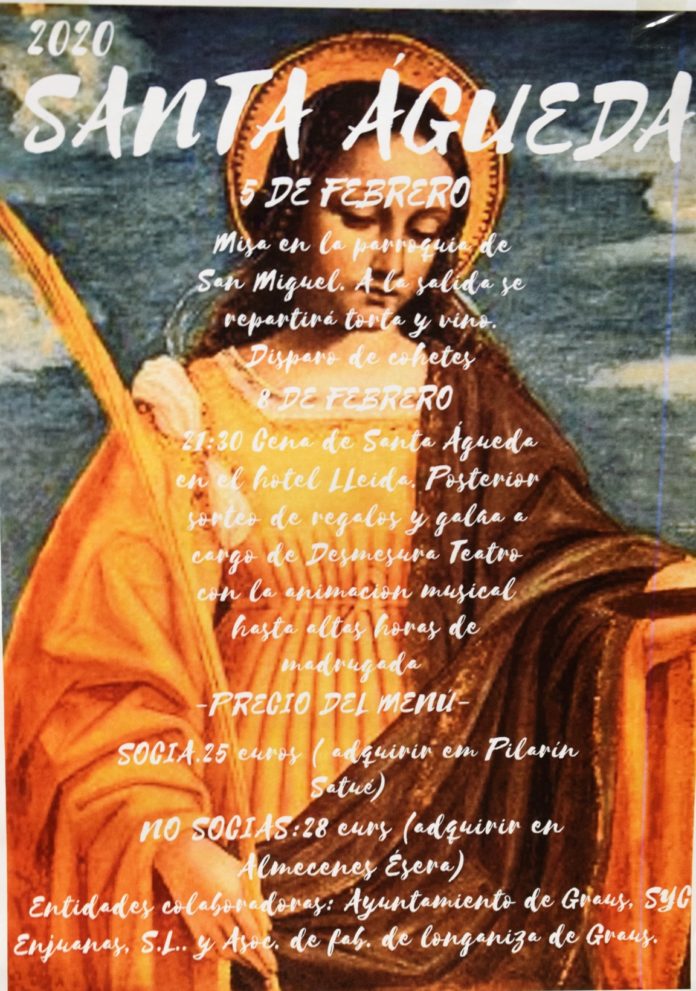 2020
SANTA ÁGUEDA
5 DE FEBRERO
Misa en la parroquia de
San Miguel. A la salida se
repartirá torta y vino.
Disparo de cohetes
8 DE FEBRERO
21:30 Cena de Santa Águeda
en el hotel LLeida. Posterior
sorteo de regalos y galúa a
cargo de Desmesura Teatro
con la animacion musical
hasta altas horas de
madrugada
-PRECIO DEL MENÚ-
SOCIA.25 euros ( adquirir em Pilarín
Satué)
NO SOCIAS:28 eurs (adquirir en
Almecenes Ésera)
Entidades colaboradoras: Ayuntamiento de Graus, SYC
Enjuanas, S.L.. y Asoc. de fab. de longaniza de Graus.